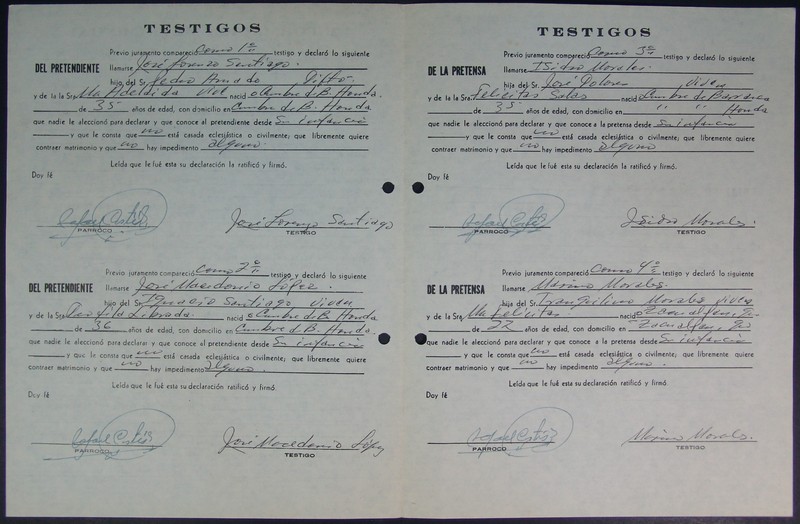 TESTIGOS
Previo juramento compareció Como 1º testigo y declaró lo siguiente
DEL PRETENDIENTE llamarse José Lorenzo Santiago.
hijo del Sr. Pedro
y de la Sra. Ma vive nació Cumbre de B. Honda
de 35 años de edad, con domicilio en Cumbre de B. Honda
que nadie le aleccionó para declarar y que conoce al pretendiente desde Su infancia
y que le consta que no está casada eclesiástica o civilmente; que libremente quiere
contraer matrimonio y que no hay impedimento alguno.
Leída que le fué esta su declaración la ratificó y firmó.
Doy fé
Rafael Cortés
José Lorenzo Santiago
PARROCO
TESTIGO
Previo juramento compareció Como 2º testigo y declaró lo siguiente
DEL PRETENDIENTE llamarse José Macedonio López.
hijo del Sr. Ignacio Santiago viven
y de la Sra. Librada nació Cumbre de B. Honda
de 36 años de edad, con domicilio en Cumbre de B. Honda.
que nadie le aleccionó para declarar y que conoce al pretendiente desde Su infancia
y que le consta que no está casada eclesiástica o civilmente; que libremente quiere
contraer matrimonio y que no hay impedimento alguno.
Leída que le fué esta su declaración ratificó y firmó.
Doy fé
Rafael Cortés
José Macedonio López
PARROCO
TESTIGO
TESTIGOS
Previo juramento compareció Como 3º testigo y declaró lo siguiente
DE LA PRETENSA llamarse Isidro Morales.
hija del Sr. José Dolores viven
y de la Sra. Felicitas Salas nació Cumbre de Barranca
de 35 años de edad, con domicilio en " " Honda
que nadie le aleccionó para declarar y que conoce a la pretensa desde Su infancia
y que le consta que no está casada eclesiástica o civilmente; que libremente quiere
contraer matrimonio y que no hay impedimento alguno
Leída que le fué esta su declaración la ratificó y firmó.
Doy fé
Rafael Cortés
Isidro Morales.
PARROCO
TESTIGO
Previo juramento compareció Como 4º testigo y declaró lo siguiente
DE LA PRETENSA llamarse Marino Morales.
hija del Sr. Tranquilino Morales viven
y de la Sra. Ma Felicitas nació
de 22 años de edad, con domicilio en
que nadie le aleccionó para declarar y que conoce a la pretensa desde Su infancia
y que le consta que no está casada eclesiástica o civilmente; que libremente quiere
contraer matrimonio y que no hay impedimento alguno.
Leída que le fué esta su declaración ratificó y firmó.
Doy fé
Rafael Cortés
Marino Morales.
PARROCO
TESTIGO